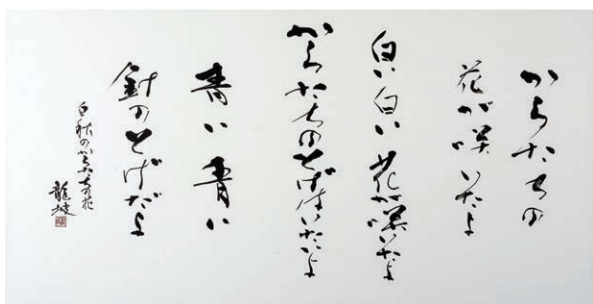 からたちの
花が咲いたよ
白い白い花が咲いたよ
からたちのとげはいたいよ
青い青い
針のとげだよ
白秋のからたちの花
龍坡